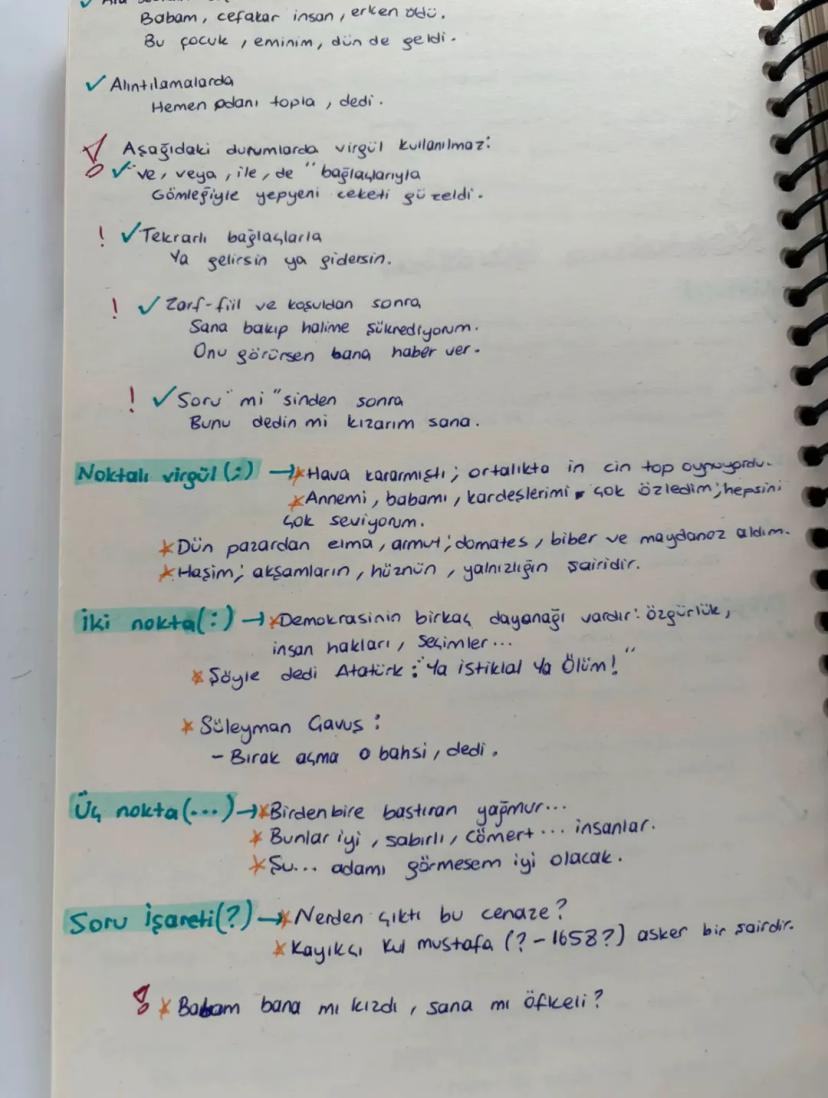 Babam, cefakar insan, erken öldü.
Bu çocuk, eminim, dün de geldi.
✓ Alıntılamalarda
Hemen odanı topla, dedi.
! Aşağıdaki durumlarda virgül kullanılmaz:
✓ "ve, veya, ile, de" bağlaçlarıyla
Gömleğiyle yepyeni ceketi güzeldi.
! ✓ Tekrarlı bağlaçlarla
Ya gelirsin ya gidersin.
! ✓ Zarf-fiil ve koşuldan sonra
Sana bakıp halime şükrediyorum.
Onu görürsen bana haber ver.
! ✓ Soru "mi" sinden sonra
Bunu dedin mi kızarım sana.
Noktalı virgül (;) → * Hava kararmıştı; ortalıkta in cin top oynuyordu.
* Annemi, babamı, kardeşlerimi çok özledim; hepsini
çok seviyorum.
* Dün pazardan elma, armut; domates, biber ve maydanoz aldım.
* Haşim; akşamların, hüznün, yalnızlığın şairidir.
İki nokta (:) → * Demokrasinin birkaç dayanağı vardır: özgürlük,
insan hakları, seçimler...
* Şöyle dedi Atatürk: "Ya istiklal Ya Ölüm!"
* Süleyman Çavuş:
- Bırak açma o bahsi, dedi.
Üç nokta (...) → * Birdenbire bastıran yağmur...
* Bunlar iyi, sabırlı, cömert... insanlar.
* Şu... adamı görmesem iyi olacak.
Soru İşareti (?) → * Nerden çıktı bu cenaze?
* Kayıkçı Kul Mustafa (?-1658?) asker bir şairdir.
! * Babam bana mı kızdı, sana mı öfkeli?